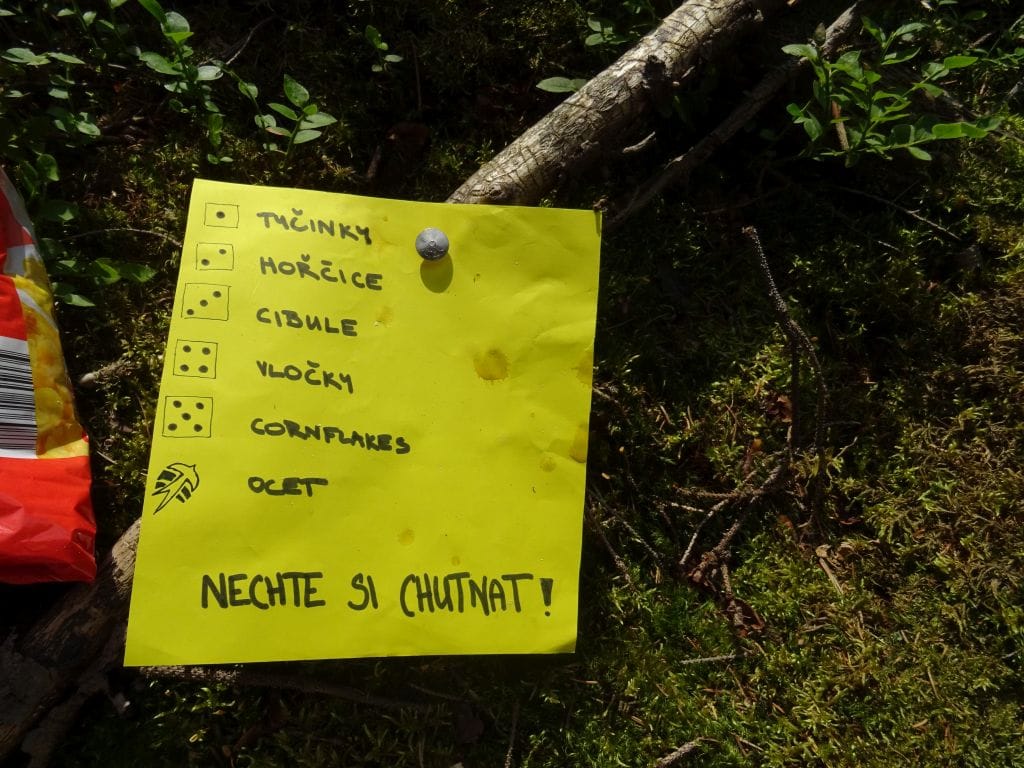 TYČINKY
HOŘČICE
CIBULE
VLOČKY
CORNFLAKES
OCET
NECHTE SI CHUTNAT!